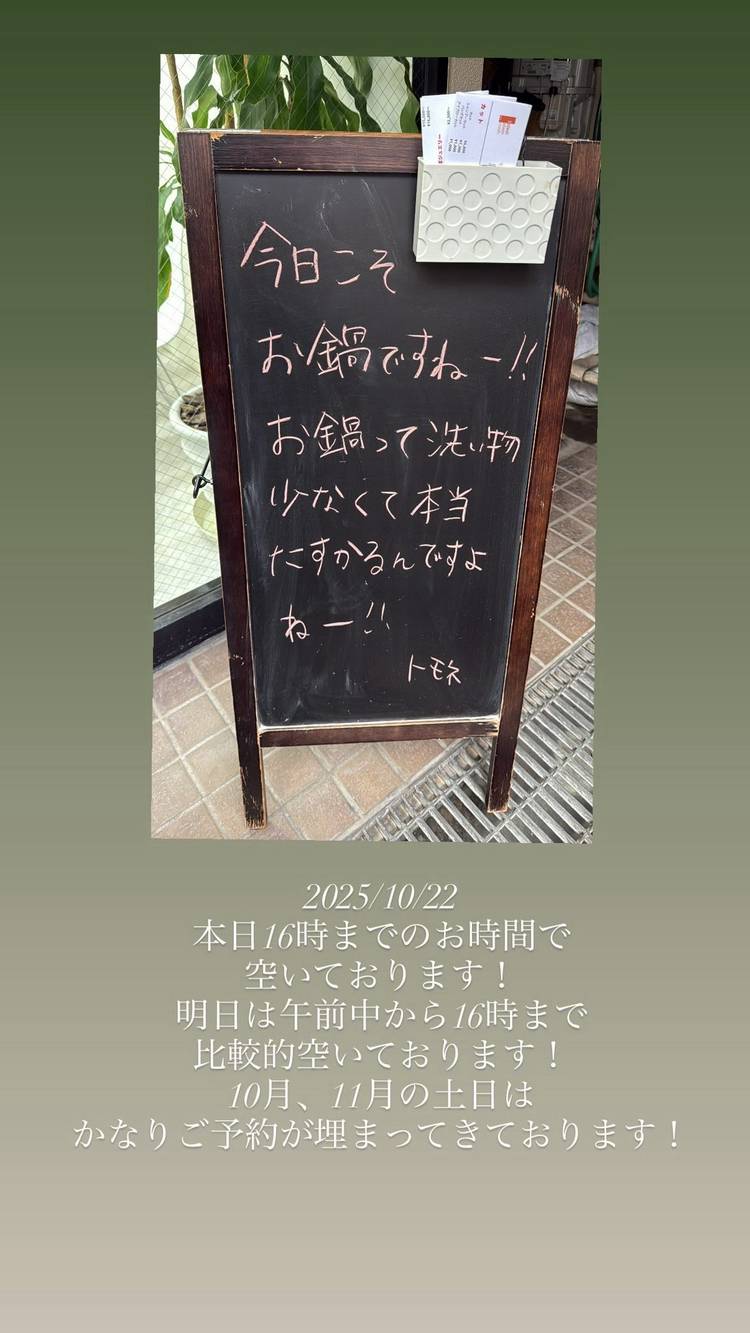 カット
今日こそ
お鍋ですねー!!
お鍋って洗い物
少なくて本当
たすかるんですよ
ねー!!
トモネ
2025/10/22
本日16時までのお時間で
空いております！
明日は午前中から16時まで
比較的空いております！
10月、11月の土日は
かなりご予約が埋まってきております！